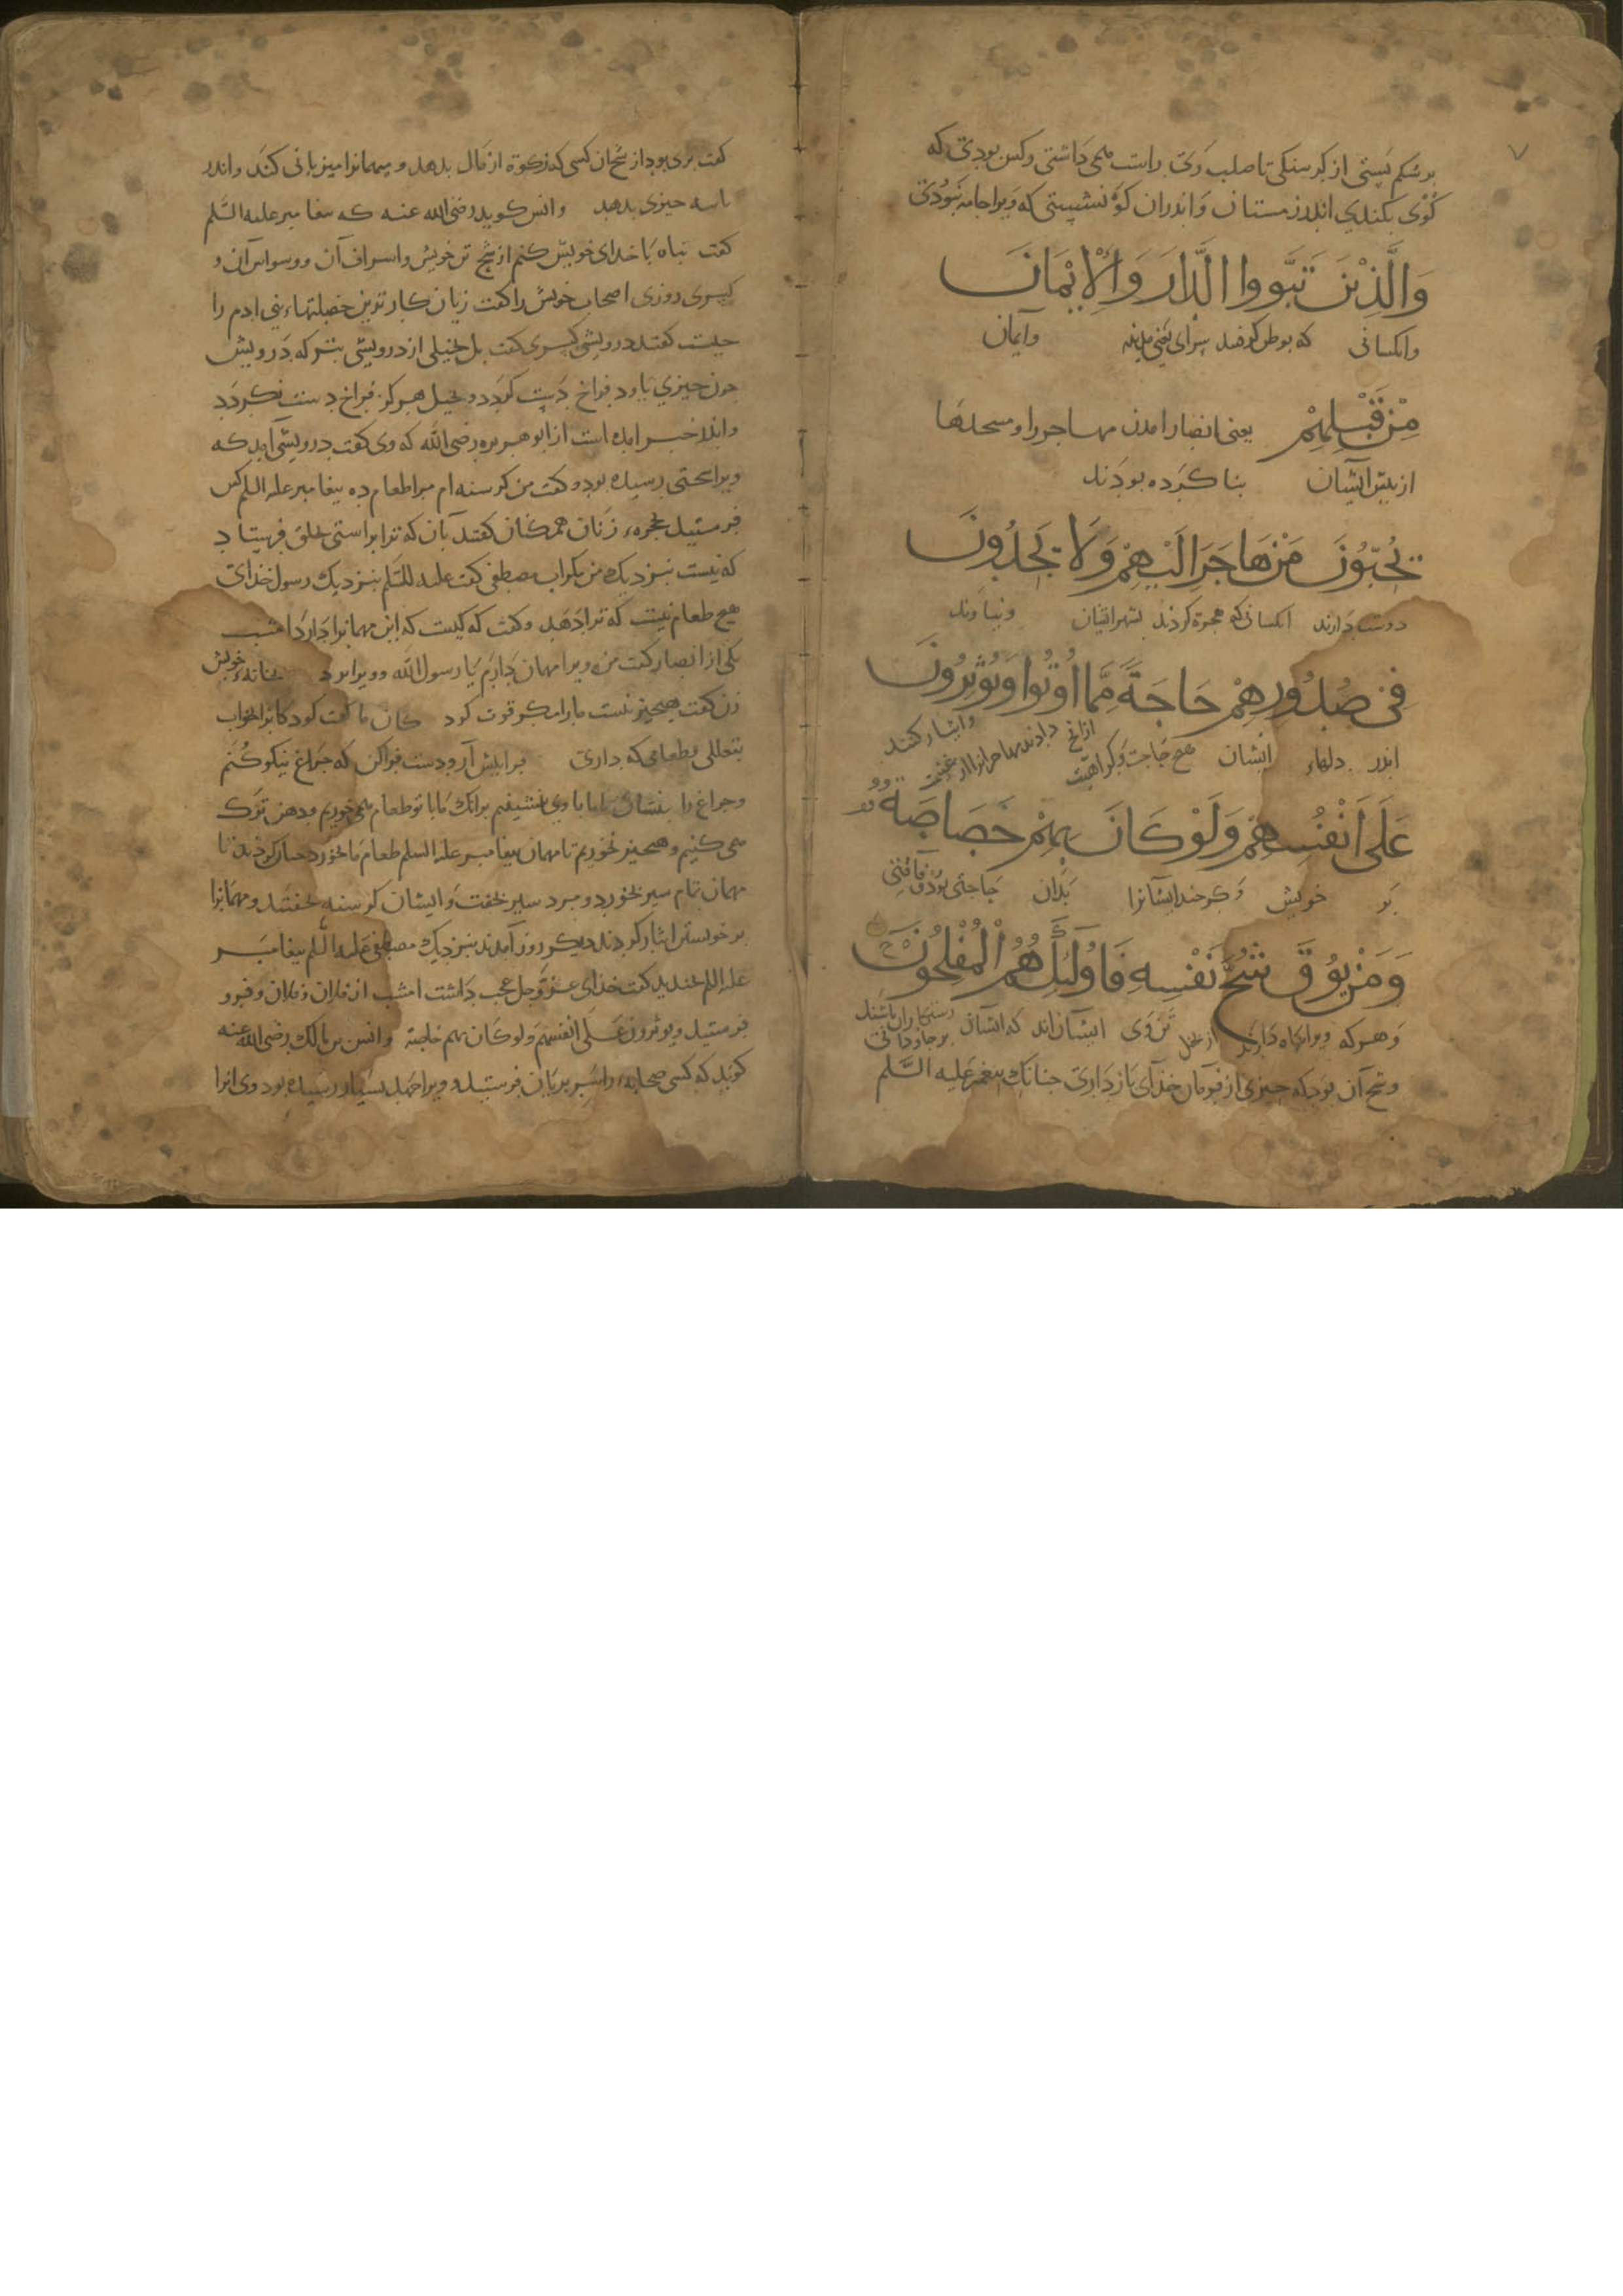 بر شکم بستی از کرسنکی تا صلب وی راست می داشتی وکس بودی که
کوی بکندی اندر زمستان و اندران کوه نشستی که ویرا جامه نبودی
وَالَّذِيْنَ تَبَوَّووا الدَّارَ وَالْاِيْمَانَ
وانکسانی که بوطن کرفتند سرای یعنی مدینه وایمان
مِنْ قَبْلِهِمْ یعنی انصار امدن مهاجر را و مسجدها
از پیش ایشان بنا کرده بودند
يُحِبُّوْنَ مَنْ هَاجَرَ اِلَيْهِمْ وَلَا يَجِدُونَ
دوست دارند انکسانی که هجرة کردند بشهر ایشان و نیاوند
فِيْ صُدُورِهِمْ حَاجَةً مِّمَّا اُوْتُوا وَيُوْثِرُونَ
اندر دلهاء ایشان هیچ حاجت و کراهیت ازانچ دادند مهاجرانرا از غنیمت وایثار کنند
عَلَى اَنْفُسِهِمْ وَلَوْ كَانَ بِهِمْ خَصَاصَةٌ
بر خویش وکرچند ایشانرا بدان حاجتی بود و فاقتی
وَمَنْ يُوْقَ شُحَّ نَفْسِهِ فَاُولٰئِكَ هُمُ الْمُفْلِحُوْنَ
وهرکه ویرا نکاه دارند از بخل تن وی ایشان اند که ایشان رستکاران باشند بر جاودانی
وشح آن بود که چیزی از فرمان خدای باز داری چنانک پیغمبر علیه السّلم
کفت بری بود از شحان کسی که زکوة از مال بدهد و میهمانرا میزبانی کند واندر
چیزی بدهد وانس کوید رضی الله عنه که پیغامبر علیه السّلم
کفت پناه با خدای خویش کنم از شح تن خویش واسراف آن ووسواس آن و
کسری روزی اصحاب خویش را کفت زیان کارترین خصلتهاء بنی ادم را
چیست کفتند درویشی کسری کفت بل بخیلی از درویشی بتر که درویش
چون چیزی یاود فراخ دست کردد و بخیل هرکز فراخ دست نکردد
واندر خبر امده است از ابو هریره رضی الله که وی کفت درویشی امد که
ویرا سختی رسیده بود و کفت من کرسنه ام مرا طعام ده پیغامبر علیه السلم کس
فرستید بحجرهء زنان همکنان کفتند بآن که ترا براستی بخلق فرستاد
که نیست بنزدیک من مکر آب مصطفی کفت علیه السّلم بنزدیک رسول خدای
هیچ طعام نیست که ترا دهد وکفت که کیست که این مهمانرا دارد امشب
یکی از انصار کفت من ویرا مهمان دارم یا رسول الله وویرا برد بخانهء خویش
زن کفت هیچیز نیست مارا مکر قوت کودکان ما کفت کودکانرا بخواب
بتعللی وطعامی که داری فرا پیش آر ودست فراکن که چراغ نیکو کنم
وچراغ را بنشان تا ما با وی بنشینیم برانک ما با تو طعام می خوریم و دهن ترک
می کنیم وهیچیز نخوریم تا مهمان پیغامبر علیه السلم طعام ما بخورد چنان کردند تا
مهمان تمام سیر بخورد و مرد سیر بخفت و ایشان کرسنه بخفتند و مهمانرا
بر خویشتن ایثار کردند دیکر روز آمدند بنزدیک مصطفی علیه السّلم پیغامبر
علیه السلم بخندید کفت خدای عزّوجل عجب داشت امشب از فلان و فلان و فرو
فرستید ویوثرون علی انفسهم ولو کان بهم خاصة وانس بن مالک رضی الله عنه
کوید که کسی صحابهء را سر بریان فرستید و ویرا جهد بسیار رسیده بود وی انرا